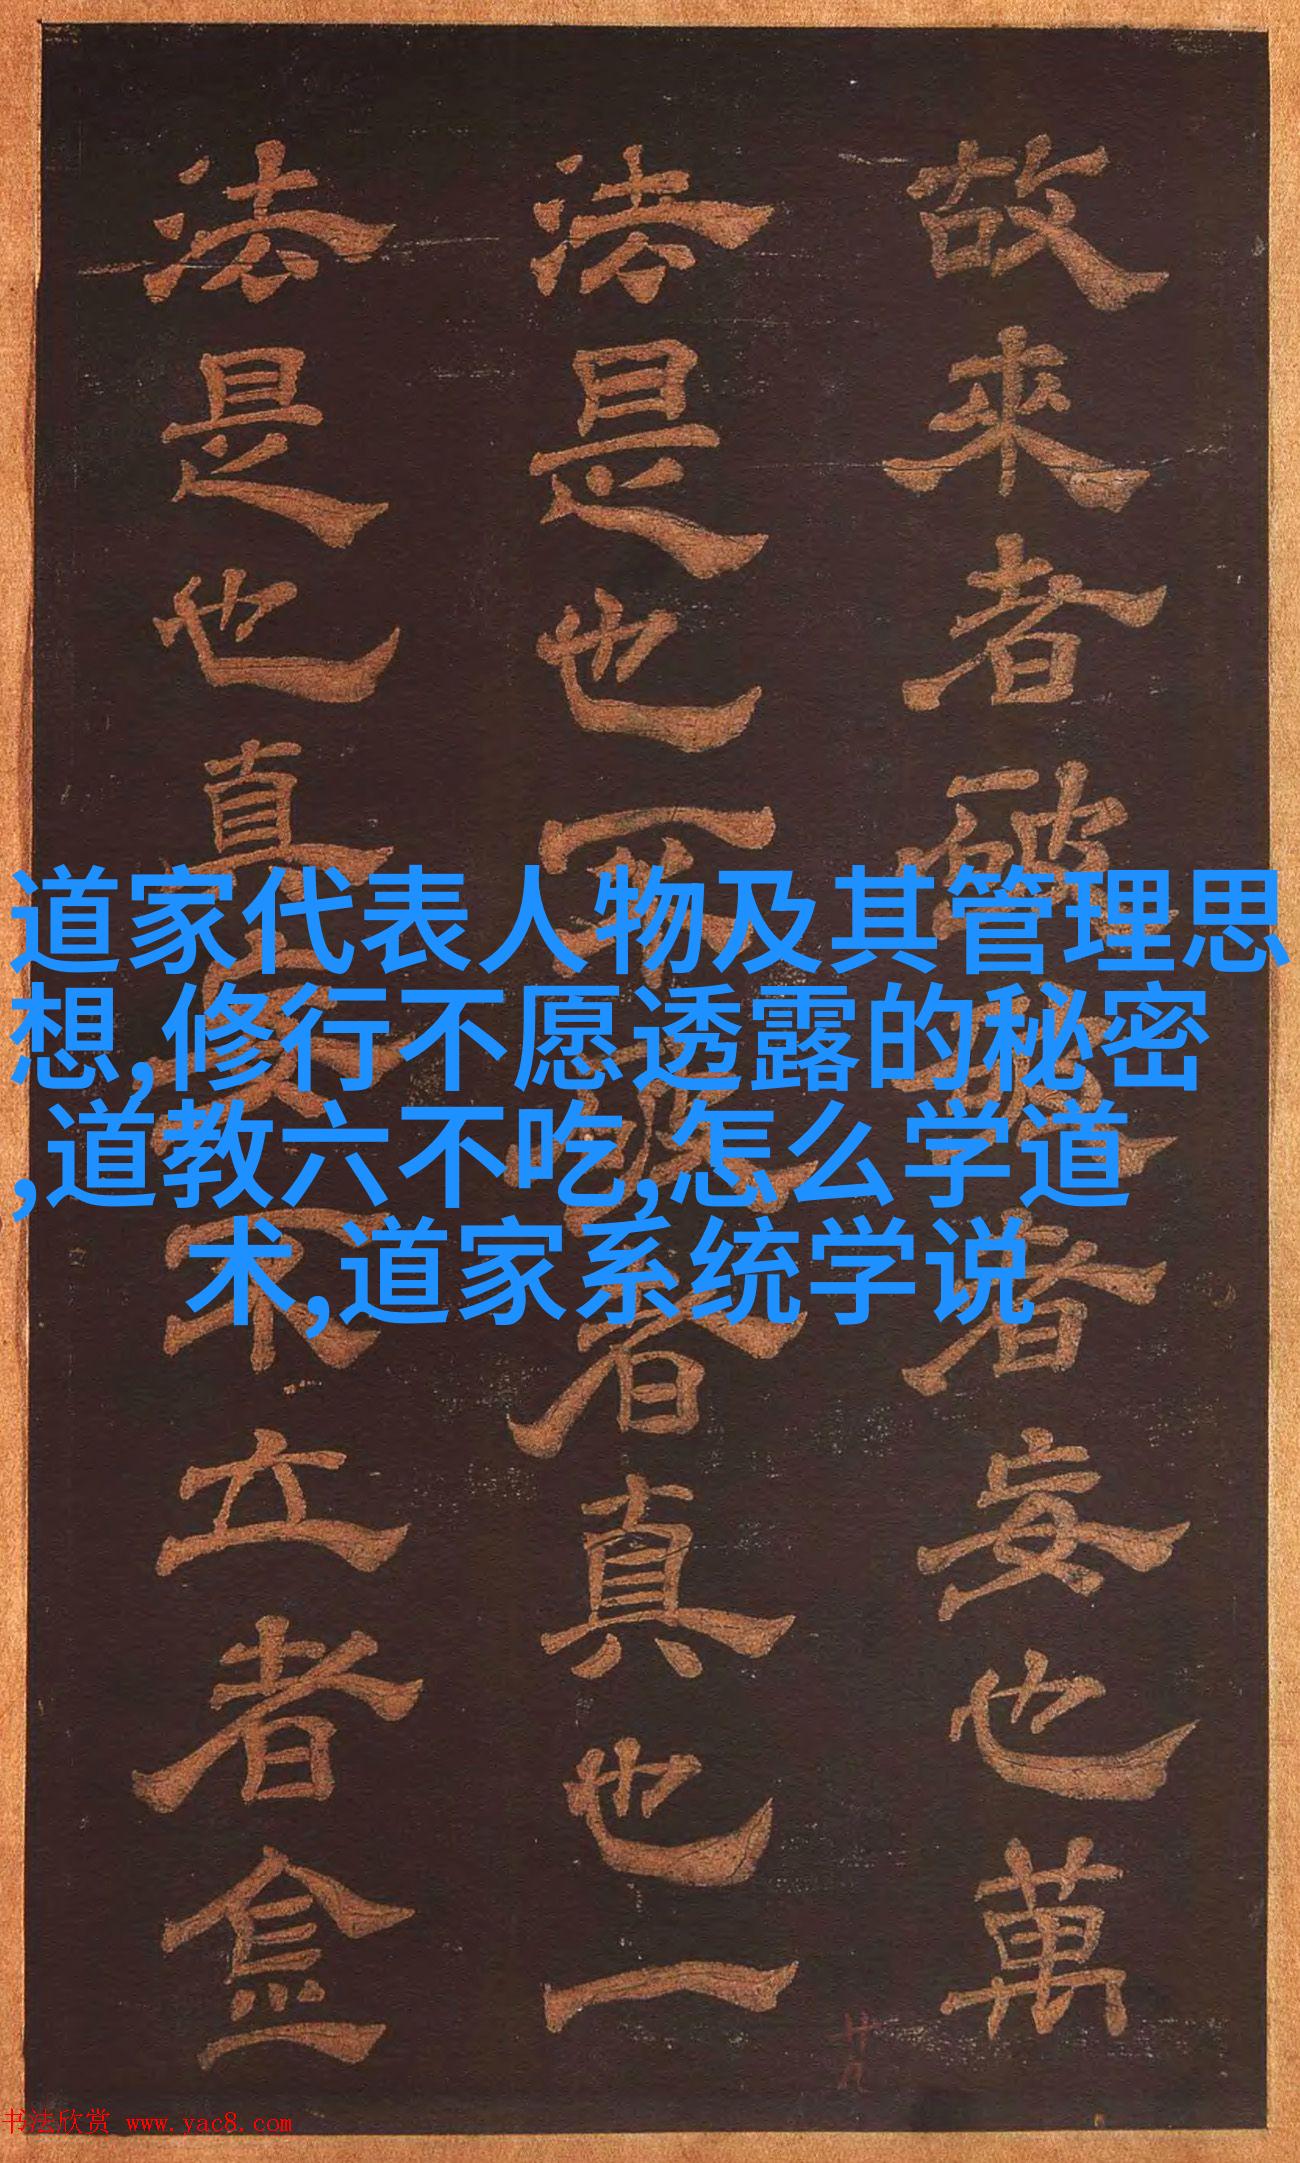 故來者者妄也萬
法是也者真也一
法是也真不立者
道家代表人物及其管理思
想,修行不愿透露的秘密
,道教六不吃,怎么学道
术,道家系统学说
廿九
书法欣赏 www.yac8.com